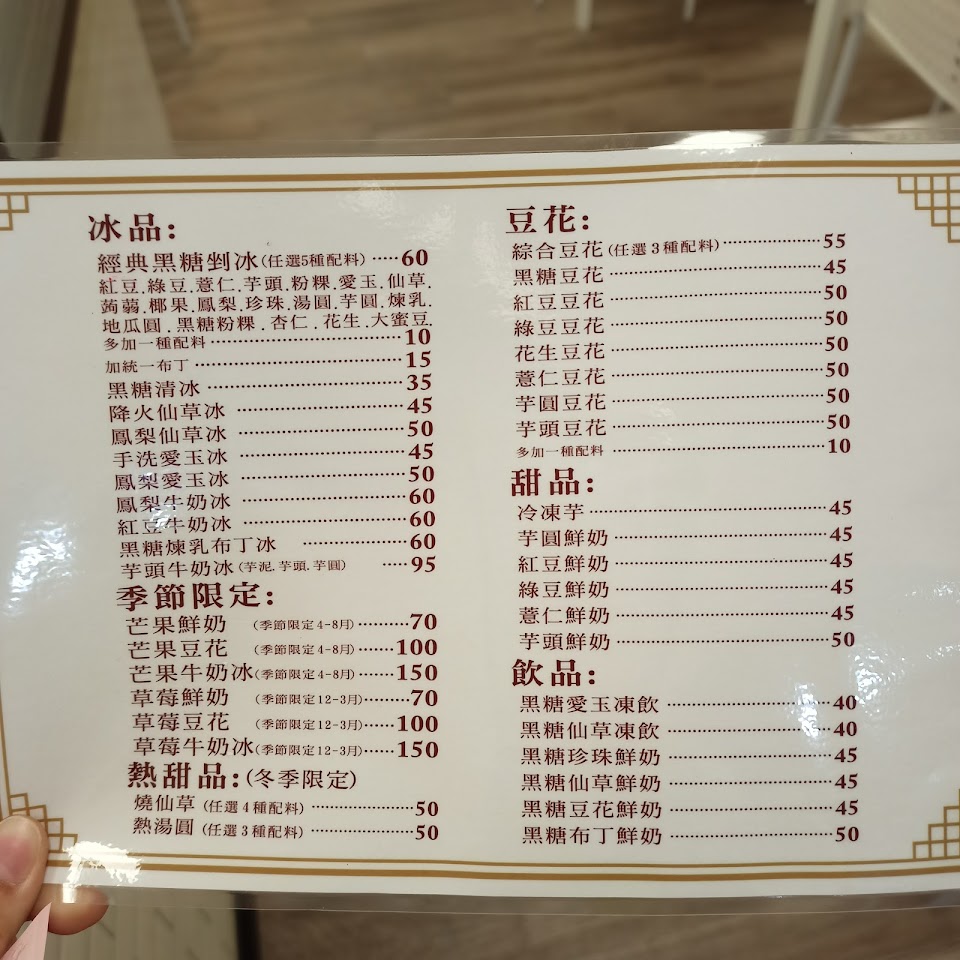 冰品:
經典黑糖剉冰(任選5種配料)·····60
紅豆.綠豆.薏仁.芋頭.粉粿.愛玉.仙草.
蒟蒻.椰果.鳳梨.珍珠.湯圓.芋圓.煉乳.
地瓜圓.黑糖粉粿.杏仁.花生.大蜜豆.
多加一種配料·····10
加統一布丁·····15
黑糖清冰·····35
降火仙草冰·····45
鳳梨仙草冰·····50
手洗愛玉冰·····45
鳳梨愛玉冰·····50
鳳梨牛奶冰·····60
紅豆牛奶冰·····60
黑糖煉乳布丁冰·····60
芋頭牛奶冰(芋泥.芋頭.芋圓)·····95
季節限定:
芒果鮮奶(季節限定4-8月)·····70
芒果豆花(季節限定4-8月)·····100
芒果牛奶冰(季節限定4-8月)·····150
草莓鮮奶(季節限定12-3月)·····70
草莓豆花(季節限定12-3月)·····100
草莓牛奶冰(季節限定12-3月)·····150
熱甜品:(冬季限定)
燒仙草(任選4種配料)·····50
熱湯圓(任選3種配料)·····50
豆花:
綜合豆花(任選3種配料)·····55
黑糖豆花·····45
紅豆豆花·····50
綠豆豆花·····50
花生豆花·····50
薏仁豆花·····50
芋圓豆花·····50
芋頭豆花·····50
多加一種配料·····10
甜品:
冷凍芋·····45
芋圓鮮奶·····45
紅豆鮮奶·····45
綠豆鮮奶·····45
薏仁鮮奶·····45
芋頭鮮奶·····50
飲品:
黑糖愛玉凍飲·····40
黑糖仙草凍飲·····40
黑糖珍珠鮮奶·····45
黑糖仙草鮮奶·····45
黑糖豆花鮮奶·····45
黑糖布丁鮮奶·····50